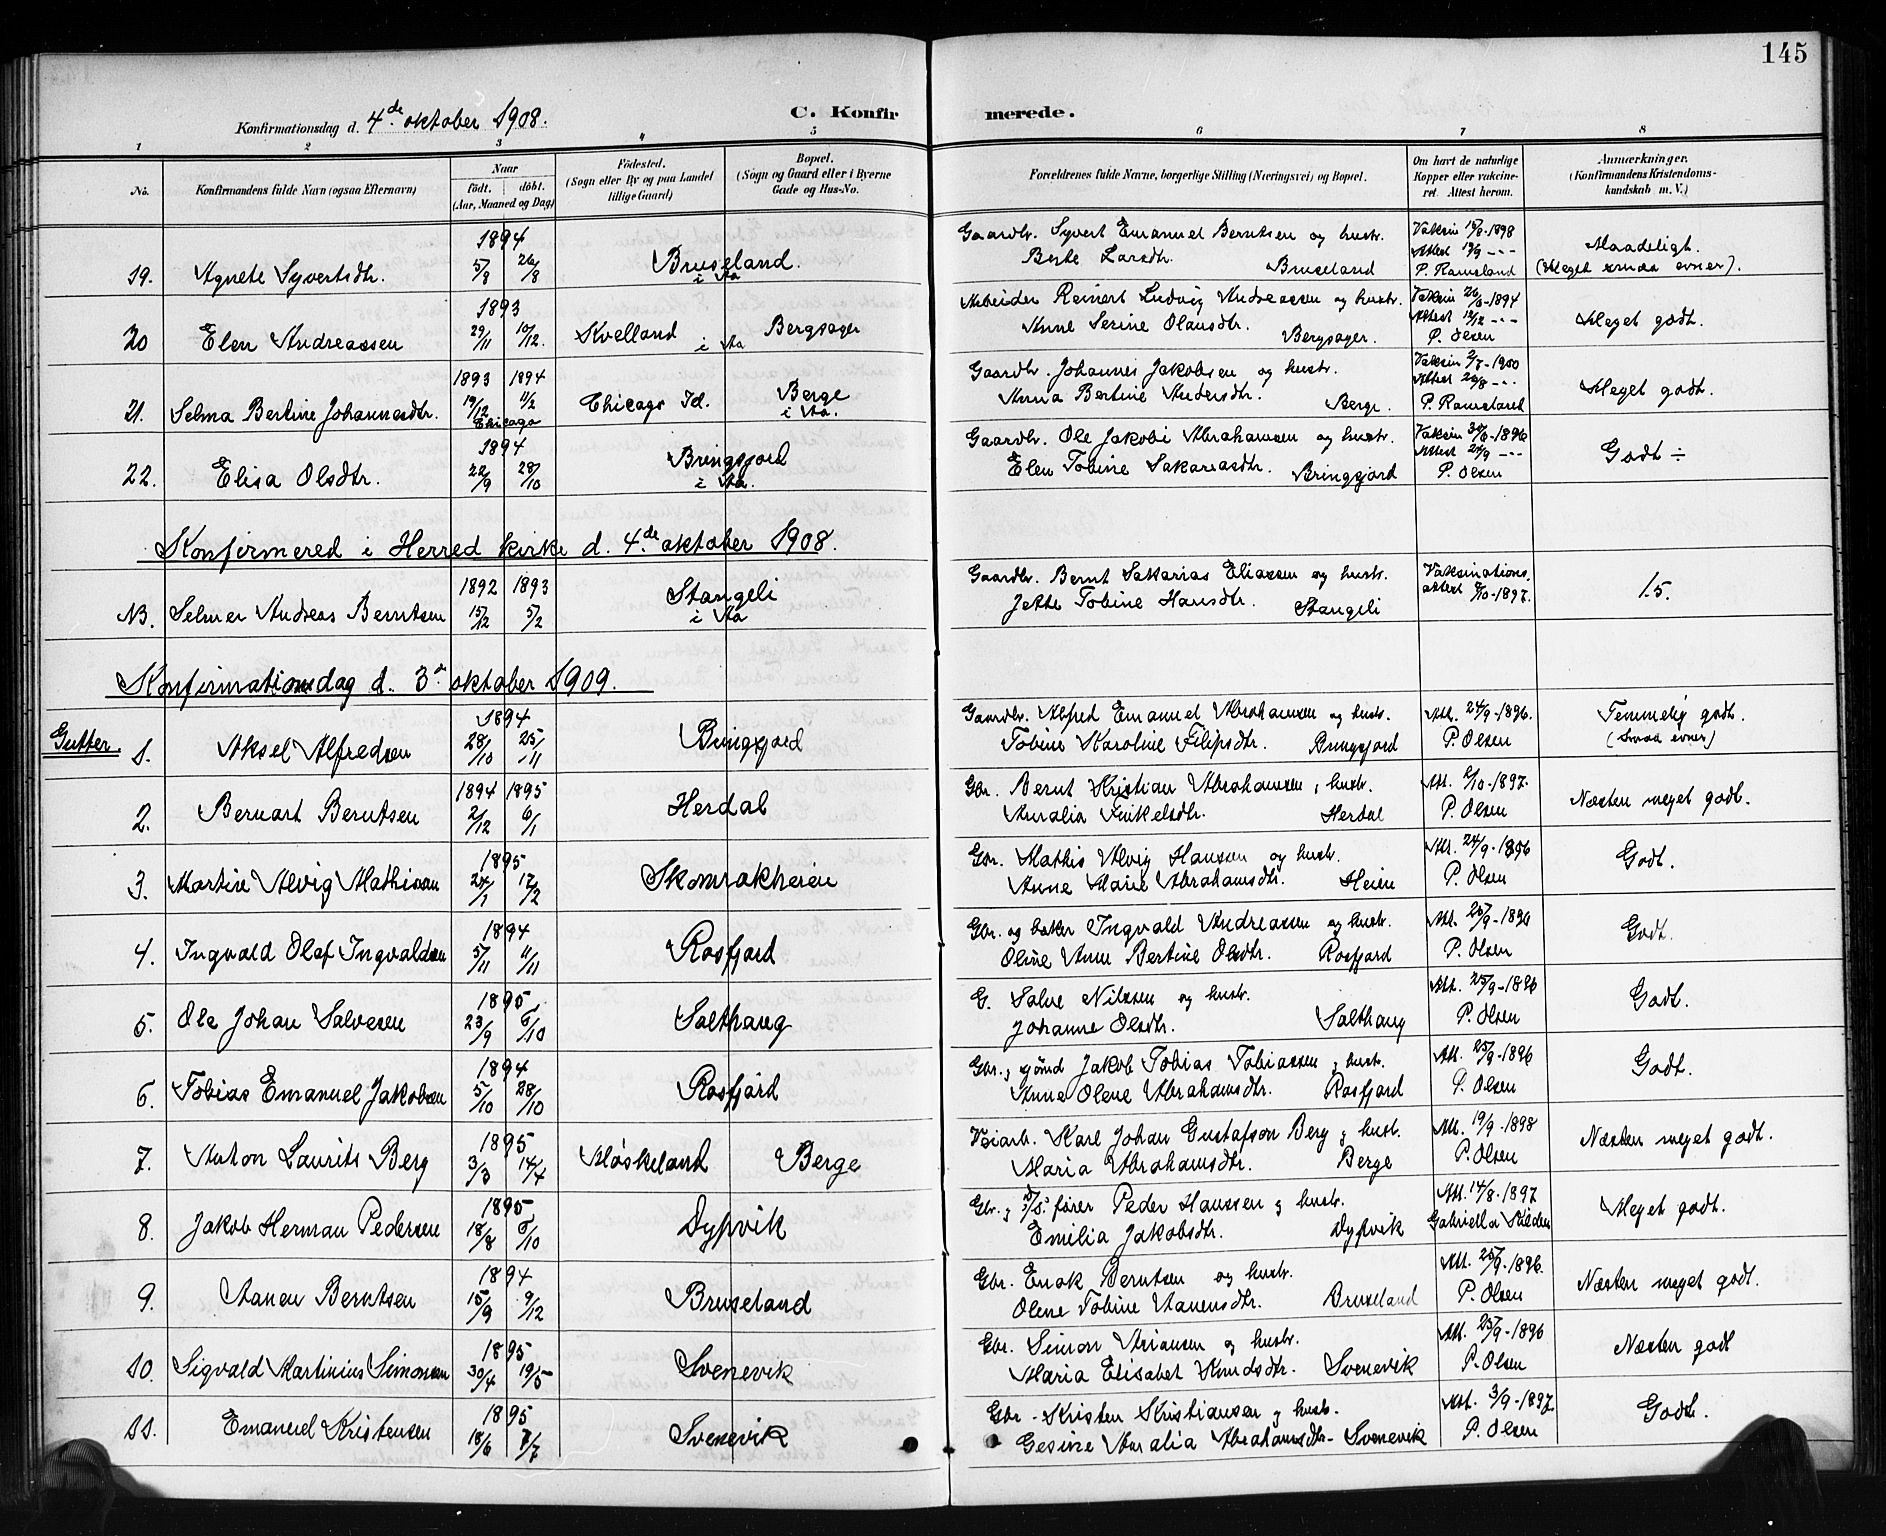 145
Konfirmationsdag d. 4de oktober 1908.
C. Konfirmerede.
1 2 3 4 5 6 7 8
No.
Konfirmandens fulde Navn (ogsaa Efternavn)
Naar
født. døbt.
(Aar, Maaned og Dag)
Födested.
(Sogn eller By og paa Landet
tillige Gaard)
Bopæl.
(Sogn og Gaard eller i Byerne
Gade og Hus-No.
Forældrenes fulde Navne, borgerlige Stilling (Næringsvei) og Bopæl.
Om havt de naturlige
Kopper eller vaccine-
ret. Attest herom.
Anmærkninger.
(Konfirmandens Kristendoms-
kundskab m. V.)
1894
19. Agnete Syvertsdtr. 26/8 Bruseland i Aa
Gaardbr. Syvert Emanuel Berntsen og hustr.
Berte Larsdtr. Bruseland
P. Rameland
Maadeligt.
(Meget smaa evner).
1893
20 Elen Andreassen 29/11 10/12. Kvelland i Aa Bergsager
Arbeider Reinert Ludvig Andreassen og hustr.
Anne Serine Olausdtr. Bergsager.
P. Olsen
Meget godt.
1893 1894
21. Selma Bertine Johannesdtr. 19/12 11/2 Chicago Chicago Id. Berge i Aa.
Gaardbr. Johannes Jakobsen og hustr.
Anna Bertine Andersdtr. Berge.
Meget godt.
1894
22. Elisa Olsdtr. 22/9 28/10 Bringsjord i Aa.
Gaardbr. Ole Jakobi Abrahamsen og hustr.
Elen Tobine Sakariasdtr. Bringsjord
P. Olsen
Godt ÷
Konfirmered i Herred kirke d. 4de oktober 1908.
1892 1893
N3. Selmer Andreas Berntsen 15/12 5/2 Stangeli i Aa
Gaardbr. Bernt Sakarias Eliassen og hustr.
Jette Tobine Hansdtr. Stangeli
Vaksinations.
attest 6/10-1897.
1.5.
Konfirmationsdag d. 3de oktober 1909.
Gutter.
1894
1. Aksel Alfredsen 28/10 25/11 Bringsjord
Gaardbr. Alfred Emanuel Abrahamsen og hustr.
Tobine Karoline Filipsdtr. Bringsjord
Att. 24/9-1896.
P. Olsen
Temmelig godt.
(Smaa evner)
1894 1895
2. Bernart Berntsen 2/12 6/1 Herdal
Gbr. Bernt Kristian Abrahamsen, hustr.
Amalia Finkelsdtr. Herdal
Att. 6/10-1897.
P. Olsen
Næsten meget godt.
1895
3. Martin Alvig Mathisen 24/1 17/2 Skomrakheien
Gbr. Mathis Alvig Hansen og hustr.
Anne Marie Abrahamsdtr. Heien
Att. 24/9-1896
P. Olsen
Godt.
1894
4. Ingvald Olaf Ingvaldsen 5/11 11/11 Rosfjord
Gbr. og baker Ingvald Andreassen og hustr.
Oline Anne Bertine Olsdtr. Rosfjord
Att. 26/9-1896
P. Olsen
Godt.
1895
5. Ole Johan Salvesen 23/9 6/10 Salthaug
G. Salve Nilssen og hustr.
Johanne Olsdtr. Salthaug
Att. 25/9-1896
P. Olsen
Godt.
1894
6. Tobias Emanuel Jakobsen 5/10 28/10 Rosfjord
Gbr. og sjømd Jakob Tobias Tobiassen og hustr.
Anne Olene Abrahamsdtr. Rosfjord
Att. 25/9-1896
P. Olsen
Godt.
1895
7. Anton Laurits Berg 3/3 14/4 Møskeland Berge
Veiarb. Karl Johan Gustafson Berg og hustr.
Maria Abrahamsdtr. Berge
Att. 19/9-1898
P. Olsen
Næsten meget godt.
1895
8. Jakob Herman Pedersen 18/8 6/10 Dypvik
Gbr. og D/S. fører Peder Hanssen og hustr.
Emilia Jakobsdtr. Dypvik
Att. 14/8-1897
Meget godt.
1894
9. Aanen Berntsen 15/9 9/12 Bruseland
Gbr. Enok Berntsen og hustr.
Olene Tobine Aanensdtr. Bruseland
Att. 25/9-1896.
P. Olsen
Næsten meget godt.
1895
10. Sigvald Martinius Simonsen 30/4 19/5 Svenevik
Gbr. Simon Ariansen og hustr.
Maria Elisabet Knudsdtr. Svenevik
Att. 25/9-1896
P. Olsen
Næsten godt
1895
11. Emanuel Kristensen 18/6 7/7 Svenevik
Gbr - Kristen Kristiansen og hustr.
Gesine Amalia Abrahamsdtr - Svenevik
Att. 3/9-1897.
P. Olsen
Godt.